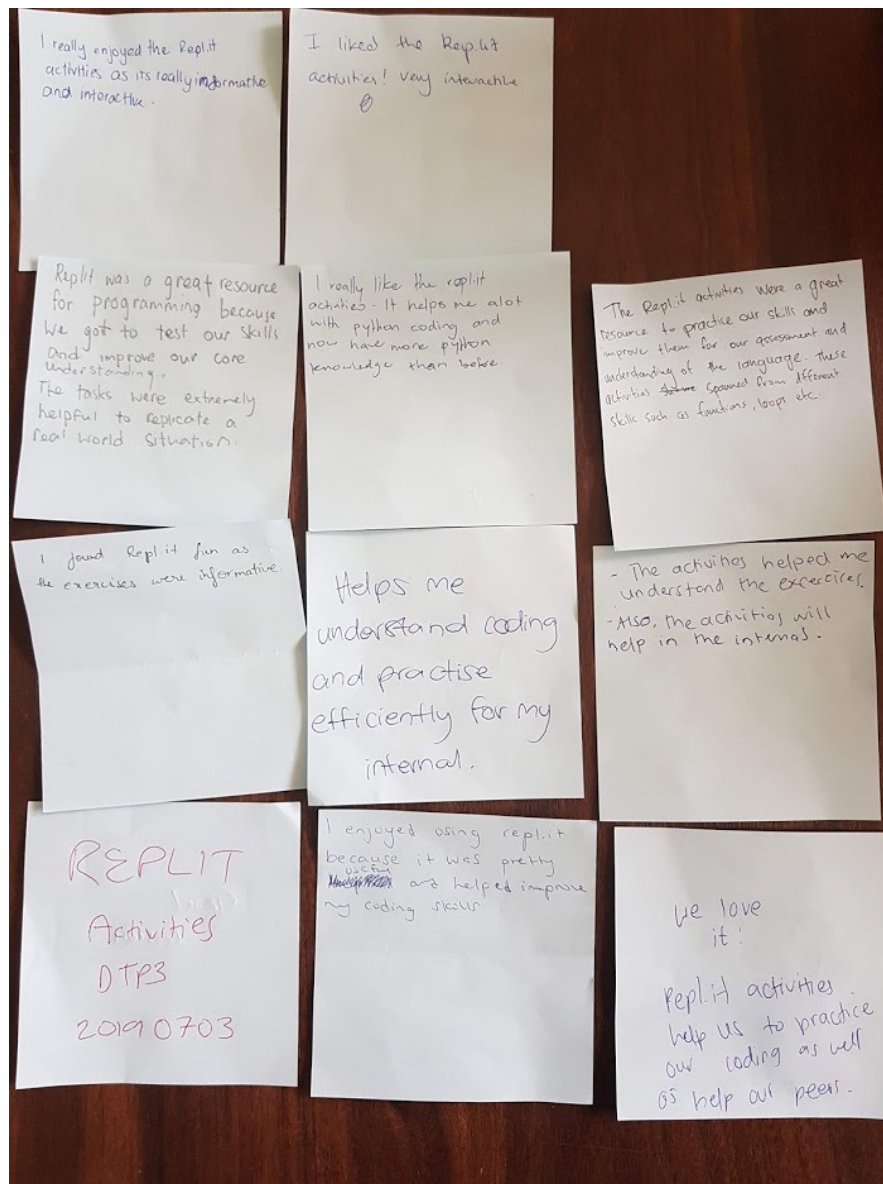 I really enjoyed the Repl.it
activities as its really informative
and interactive.
I liked the Repl.it
activities! Very interactive
Repl.it was a great resource
for programming because
we got to test our skills
and improve our core
understanding.
The tasks were extremely
helpful to replicate a
real world situation.
I really like the repl.it
activities. It helps me alot
with python coding and
now have more python
knowledge than before.
The Repl.it activities were a great
resource to practice our skills and
improve them for our assessment and
understanding of the language. These
activities spanned from different
skills such as functions, loops etc.
I found Repl.it fun as
the exercises were informative.
Helps me
understand coding
and practise
efficiently for my
internal.
- The activities helped me
understand the excercices.
- Also, the activities will
help in the internal.
REPLIT
Activities
DTP3
20190703
I enjoyed using repl.it
because it was pretty
useful
and helped improve
my coding skills
we love
it:
Repl.it activities
help us to practice
our coding as well
as help our peers.